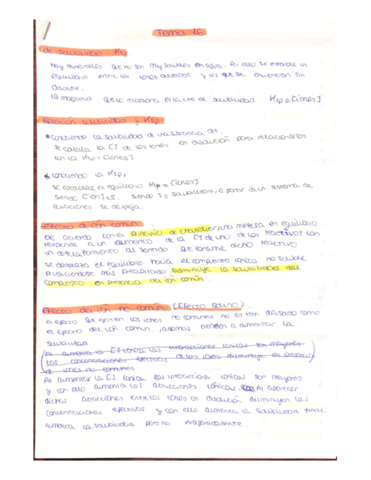 Tema 16
de solubilidad Ks
Hay minerales que no son muy solubles en agua. Por ello se establece un
equilibrio entre los iones disueltos y los que se encuentran sin
disolver.
La magnitud que lo relaciona es la cte de solubilidad Kps = [iones]
Relación solubilidad y Kps
* Conociendo la solubilidad de una sustancia
se calcula la [] de los iones en disolución para relacionarlos
con la Kps = [iones]
* Conociendo la Kps,
se establece el equilibrio Kps = [iones]
siendo [ion] = S. Siendo S = solubilidad, a partir de un sistema de
ecuaciones se despeja.
Efecto de ión común
De acuerdo con el principio de Chatelier una mezcla en equilibrio
responde a un aumento de la [] de uno de los reactivos con
un desplazamiento al sentido que consume dicho reactivo
se desplaza el equilibrio hacia el compuesto iónico no soluble
produciéndose más precipitado disminuye la solubilidad del
compuesto en presencia del ión común.
Efecto del ión no común (Efecto salino)
el efecto que ejercen los iones no comunes no es tan acusado como
el efecto del ión común, además tienden a aumentar la
solubilidad
al aumentar la [] iónica las interacciones iónicas son mayores
las concentraciones efectivas de los iones disminuyen en presencia
de iones no comunes
Al aumentar la [] iónica, las interacciones iónicas son mayores
y con ello aumenta las atracciones iónicas. Al aparecer
dichas atracciones entre los iones en disolución disminuyen las
concentraciones efectivas y con ello aumenta la solubilidad
Aumenta la solubilidad pero no